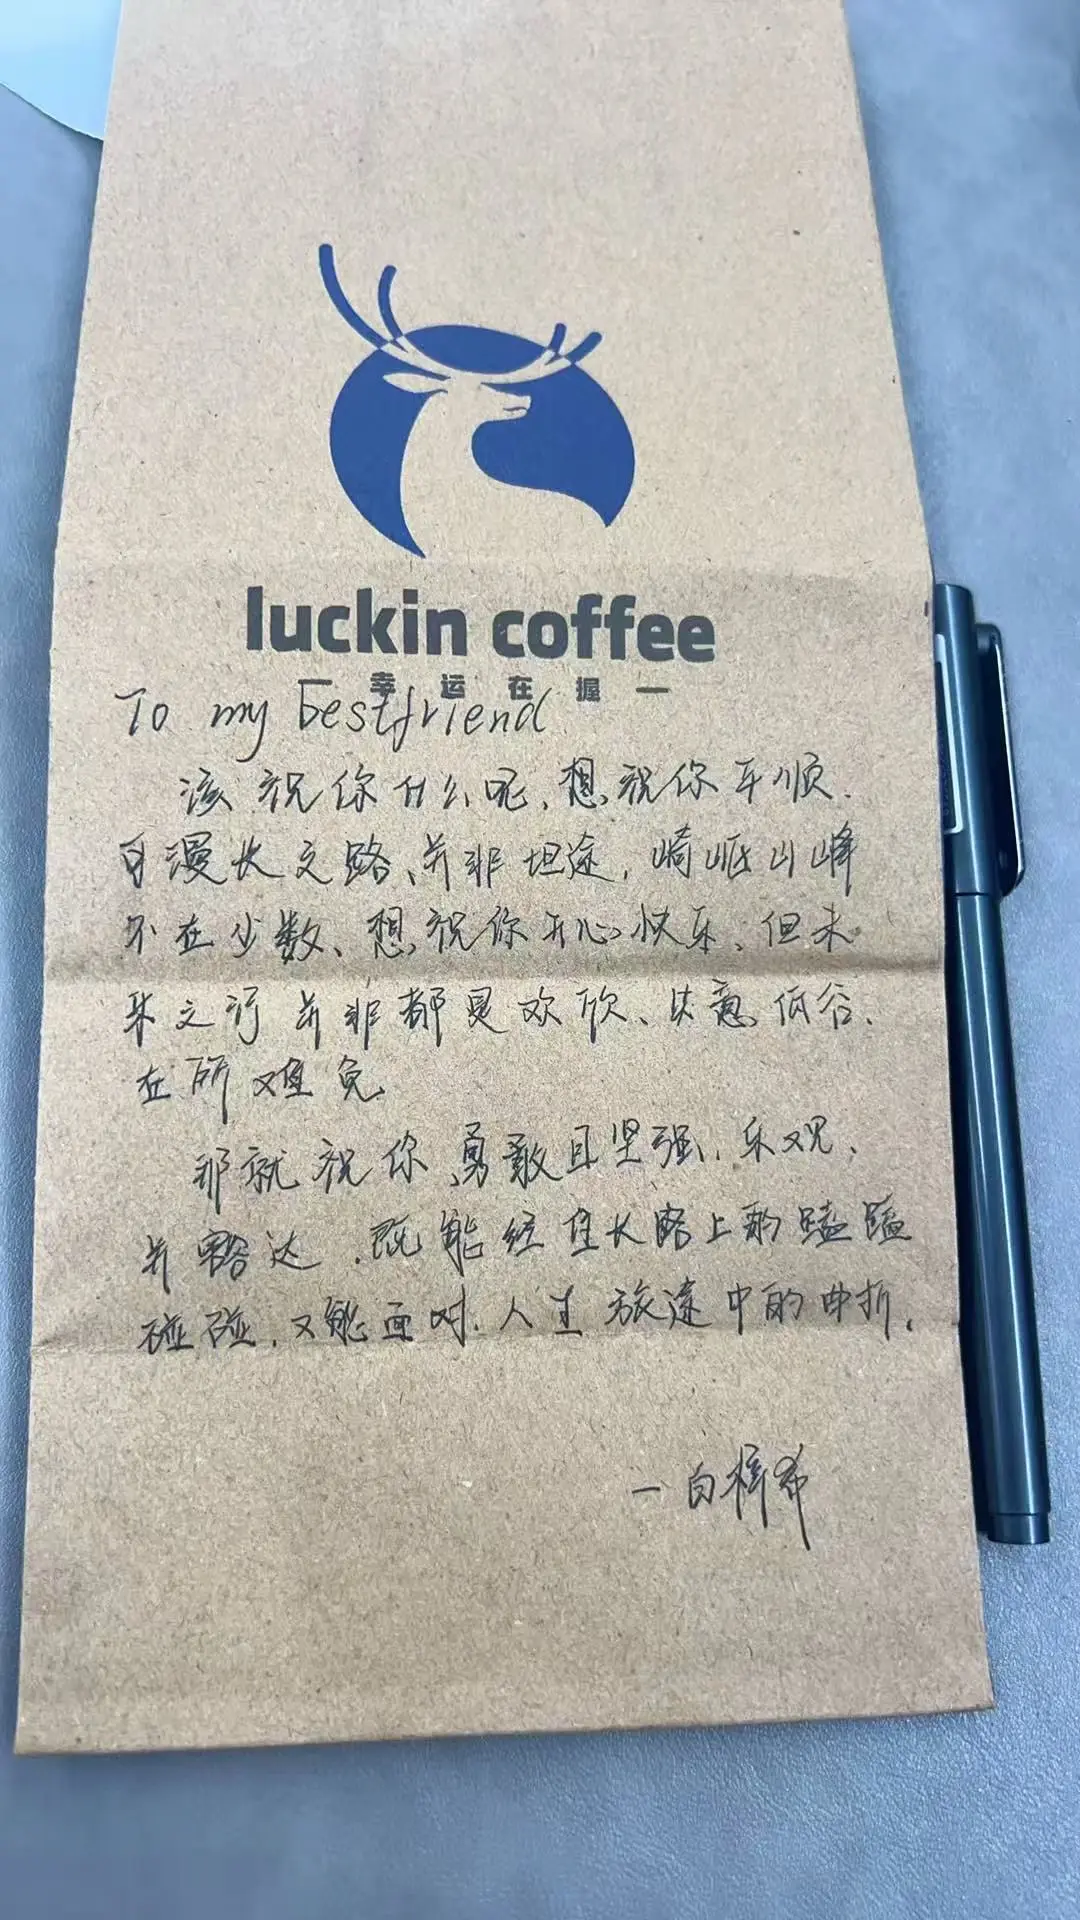 luckin coffee
幸运在握
To my bestfriend
该祝你什么呢、想祝你平顺.
自漫长之路、并非坦途, 崎岖山峰
不在少数、想祝你开心快乐、但未
来之行并非都是欢欣、失意低谷、
在所难免
那就祝你勇敢且坚强、乐观、
并豁达.既能经住长路上的磕磕
碰碰.又能面对.人生旅途中的曲折.
一白梓希